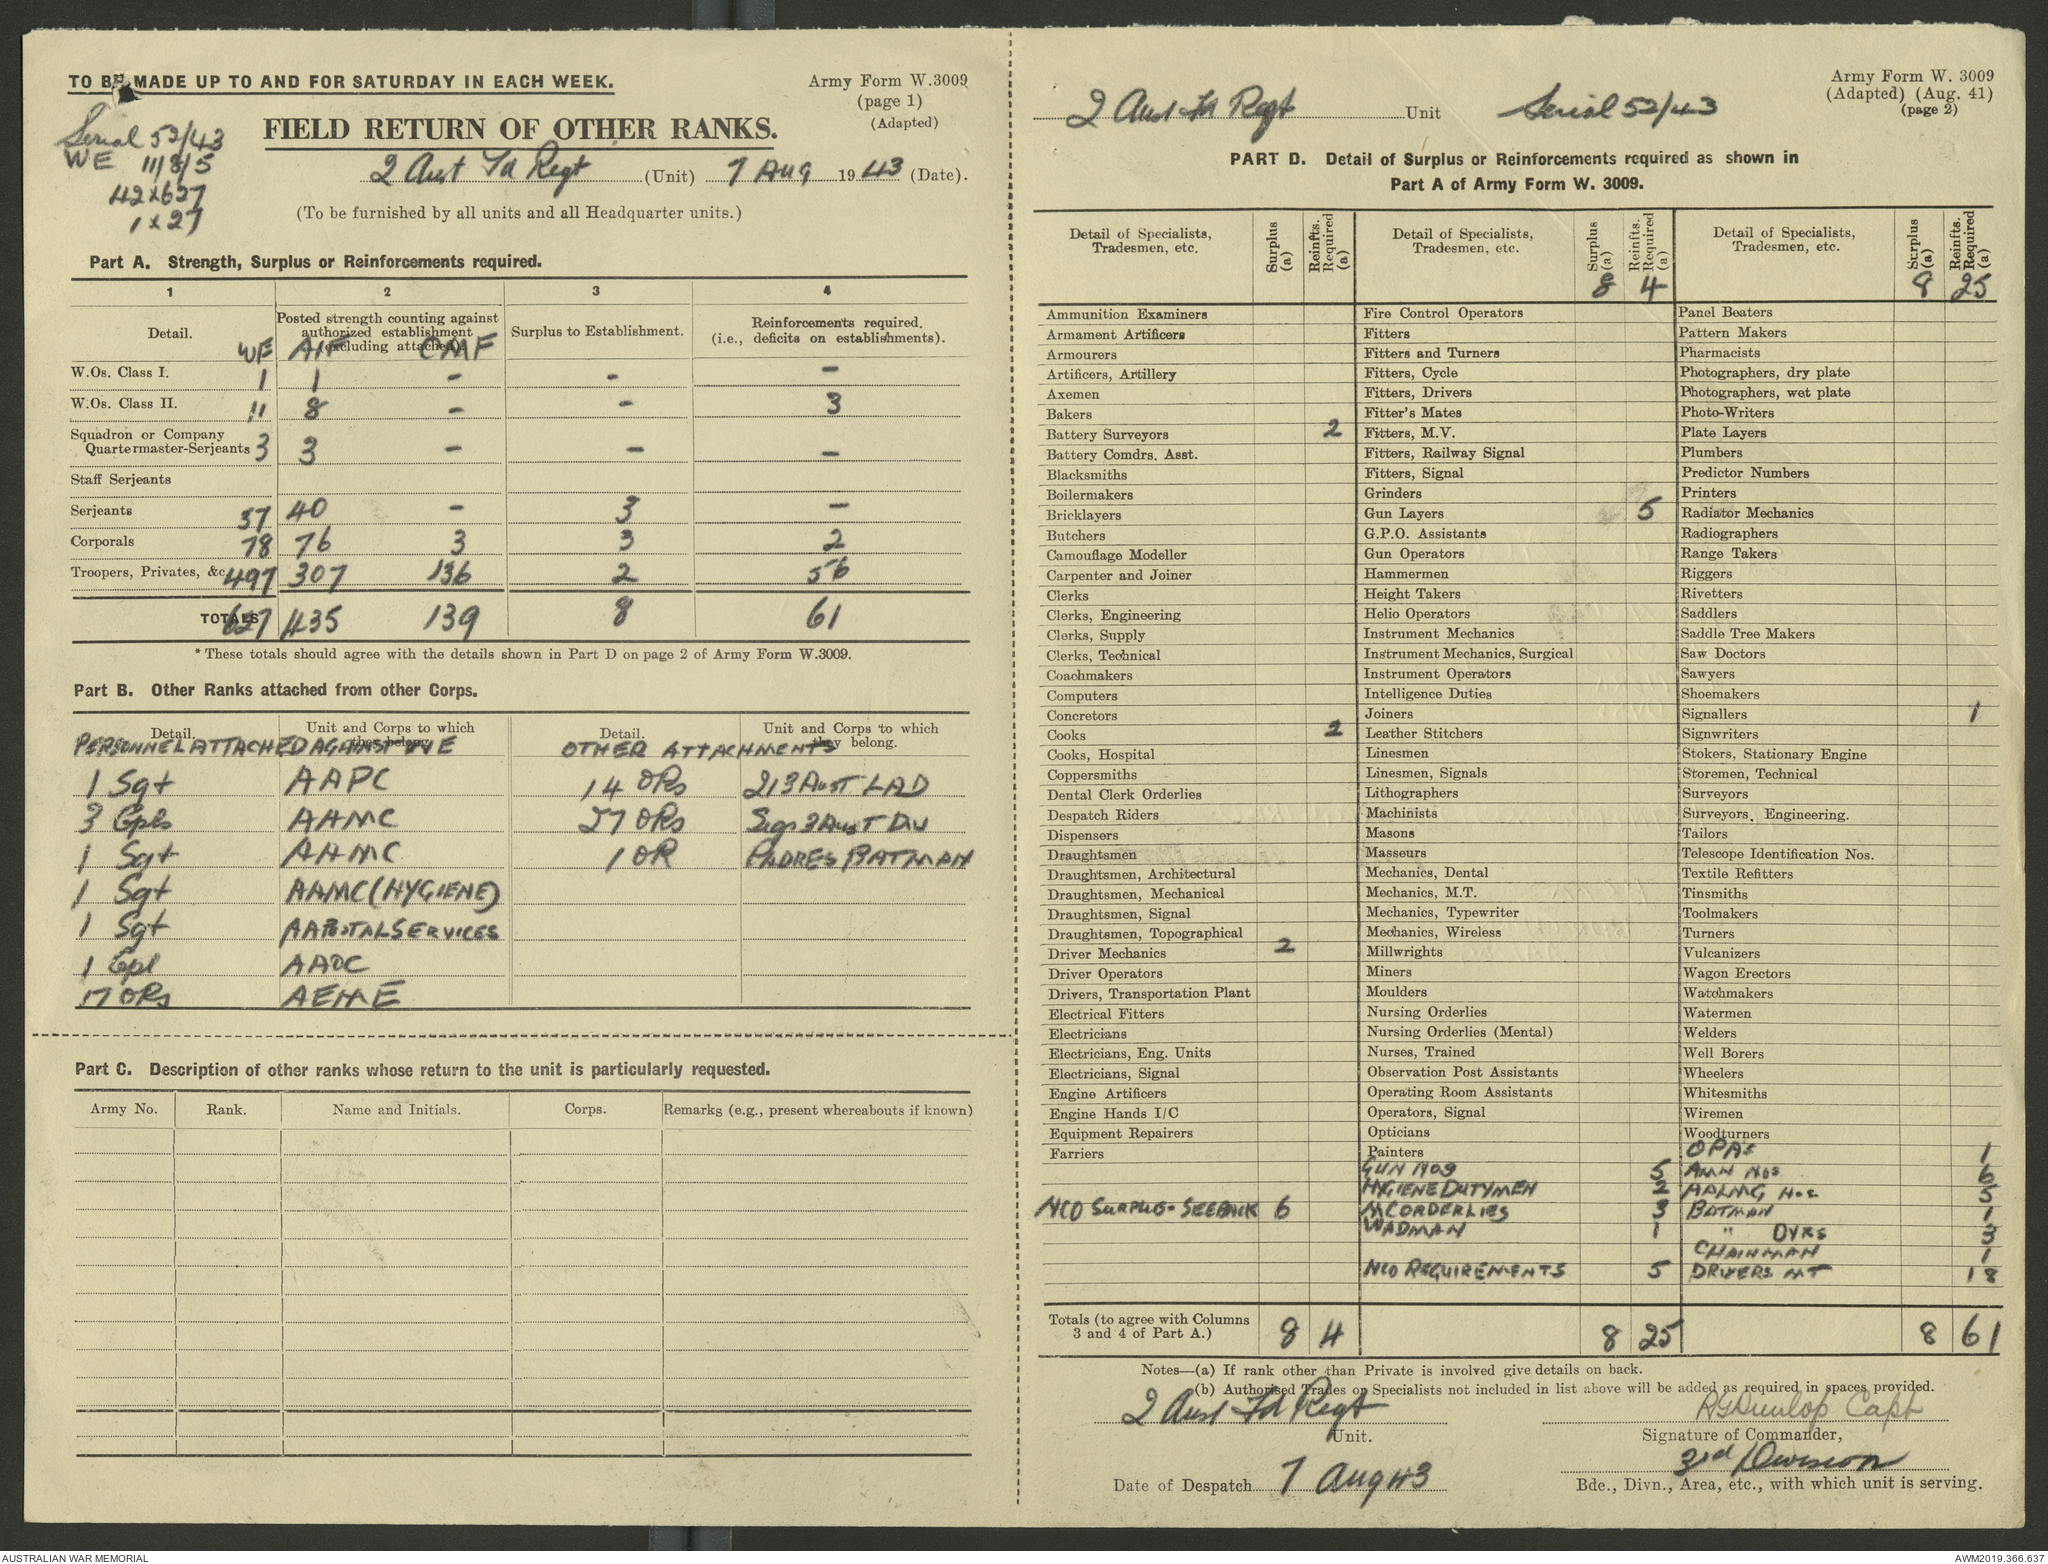 TO BE MADE UP TO AND FOR SATURDAY IN EACH WEEK.
Army Form W.3009
(page 1)
(Adapted)
Serial 52/43
WE 11/8/5
42x627
1x27
FIELD RETURN OF OTHER RANKS.
2 Aust Fd Regt (Unit) 7 Aug 1943 (Date).
(To be furnished by all units and all Headquarter units.)
Part A. Strength, Surplus or Reinforcements required.
1 2 3 4
Detail. WE
Posted strength counting against authorized establishment (excluding attached). AIF CMF
Surplus to Establishment.
Reinforcements required. (i.e., deficits on establishments).
W.Os. Class I. 1 1 - - -
W.Os. Class II. 11 8 - - 3
Squadron or Company
Quartermaster-Serjeants 3 3 - - -
Staff Serjeants
Serjeants 37 40 - 3 -
Corporals 78 76 3 3 2
Troopers, Privates, &c 497 307 136 2 56
TOTALS 627 435 139 8 61
* These totals should agree with the details shown in Part D on page 2 of Army Form W.3009.
Part B. Other Ranks attached from other Corps.
Detail. Unit and Corps to which they belong. Detail. Unit and Corps to which they belong.
PERSONNEL ATTACHED AGAINST WE OTHER ATTACHMENTS
1 Sgt AAPC 14 ORs 213 Aust LAD
3 Cpls AAMC 27 ORs Sigs 3 Aust Div
1 Sgt AAMC 1 OR PADRES BATMAN
1 Sgt AAMC (HYGIENE)
1 Sgt AAPOSTAL SERVICES
1 Cpl AAOC
17 ORs AEME
Part C. Description of other ranks whose return to the unit is particularly requested.
Army No. Rank. Name and Initials. Corps. Remarks (e.g., present whereabouts if known)
Army Form W. 3009
(Adapted) (Aug. 41)
(page 2)
2 Aust Fd Regt Unit Serial 52/43
PART D. Detail of Surplus or Reinforcements required as shown in
Part A of Army Form W. 3009.
Detail of Specialists, Tradesmen, etc. Surplus (a) Reinfts. Required (a)
Ammunition Examiners
Armament Artificers
Armourers
Artificers, Artillery
Axemen
Bakers
Battery Surveyors 2
Battery Comdrs. Asst.
Blacksmiths
Boilermakers
Bricklayers
Butchers
Camouflage Modeller
Carpenter and Joiner
Clerks
Clerks, Engineering
Clerks, Supply
Clerks, Technical
Coachmakers
Computers
Concretors
Cooks 2
Cooks, Hospital
Coppersmiths
Dental Clerk Orderlies
Despatch Riders
Dispensers
Draughtsmen
Draughtsmen, Architectural
Draughtsmen, Mechanical
Draughtsmen, Signal
Draughtsmen, Topographical
Driver Mechanics 2
Driver Operators
Drivers, Transportation Plant
Electrical Fitters
Electricians
Electricians, Eng. Units
Electricians, Signal
Engine Artificers
Engine Hands I/C
Equipment Repairers
Farriers
NCO SURPLUS - SEE BACK 6
Detail of Specialists, Tradesmen, etc. Surplus (a) 8 Reinfts. Required (a) 4
Fire Control Operators
Fitters
Fitters and Turners
Fitters, Cycle
Fitters, Drivers
Fitter's Mates
Fitters, M.V.
Fitters, Railway Signal
Fitters, Signal
Grinders
Gun Layers 5
G.P.O. Assistants
Gun Operators
Hammermen
Height Takers
Helio Operators
Instrument Mechanics
Instrument Mechanics, Surgical
Instrument Operators
Intelligence Duties
Joiners
Leather Stitchers
Linesmen
Linesmen, Signals
Lithographers
Machinists
Masons
Masseurs
Mechanics, Dental
Mechanics, M.T.
Mechanics, Typewriter
Mechanics, Wireless
Millwrights
Miners
Moulders
Nursing Orderlies
Nursing Orderlies (Mental)
Nurses, Trained
Observation Post Assistants
Operating Room Assistants
Operators, Signal
Opticians
Painters
GUN NOS 5
HYGIENE DUTYMEN 2
MC ORDERLIES 3
WADMAN 1
NCO REQUIREMENTS 5
Detail of Specialists, Tradesmen, etc. Surplus (a) 8 Reinfts. Required (a) 25
Panel Beaters
Pattern Makers
Pharmacists
Photographers, dry plate
Photographers, wet plate
Photo-Writers
Plate Layers
Plumbers
Predictor Numbers
Printers
Radiator Mechanics
Radiographers
Range Takers
Riggers
Rivetters
Saddlers
Saddle Tree Makers
Saw Doctors
Sawyers
Shoemakers
Signallers 1
Signwriters
Stokers, Stationary Engine
Storemen, Technical
Surveyors
Surveyors, Engineering.
Tailors
Telescope Identification Nos.
Textile Refitters
Tinsmiths
Toolmakers
Turners
Vulcanizers
Wagon Erectors
Watchmakers
Watermen
Welders
Well Borers
Wheelers
Whitesmiths
Wiremen
Woodturners
OPAs 1
AMN NOS 6
AALMG Nos 5
BATMAN 1
" DVRS 3
CHAINMAN 1
DRIVERS MT 18
Totals (to agree with Columns 3 and 4 of Part A.) 8 4 8 25 8 61
Notes—(a) If rank other than Private is involved give details on back.
(b) Authorised Trades or Specialists not included in list above will be added as required in spaces provided.
2 Aust Fd Regt
Unit.
RGDunlop Capt
Signature of Commander,
3rd Division
Date of Despatch 7 Aug 43
Bde., Divn., Area, etc., with which unit is serving.
AUSTRALIAN WAR MEMORIAL
AWM2019.366.637